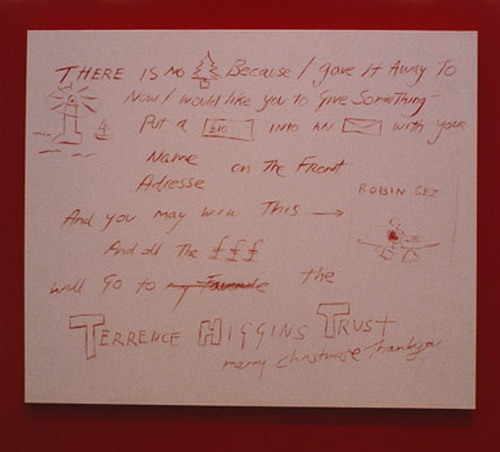 THERE IS NO Because I gave It Away To
Now I would like you to Give Something
Put a £10 INTO AN with your
Name on The Front
Adresse
ROBIN SEZ
And you may win This
And all The £££
will Go to my Favourite the
TERRENCE HIGGINS TRUST
merry christmose Thankyou